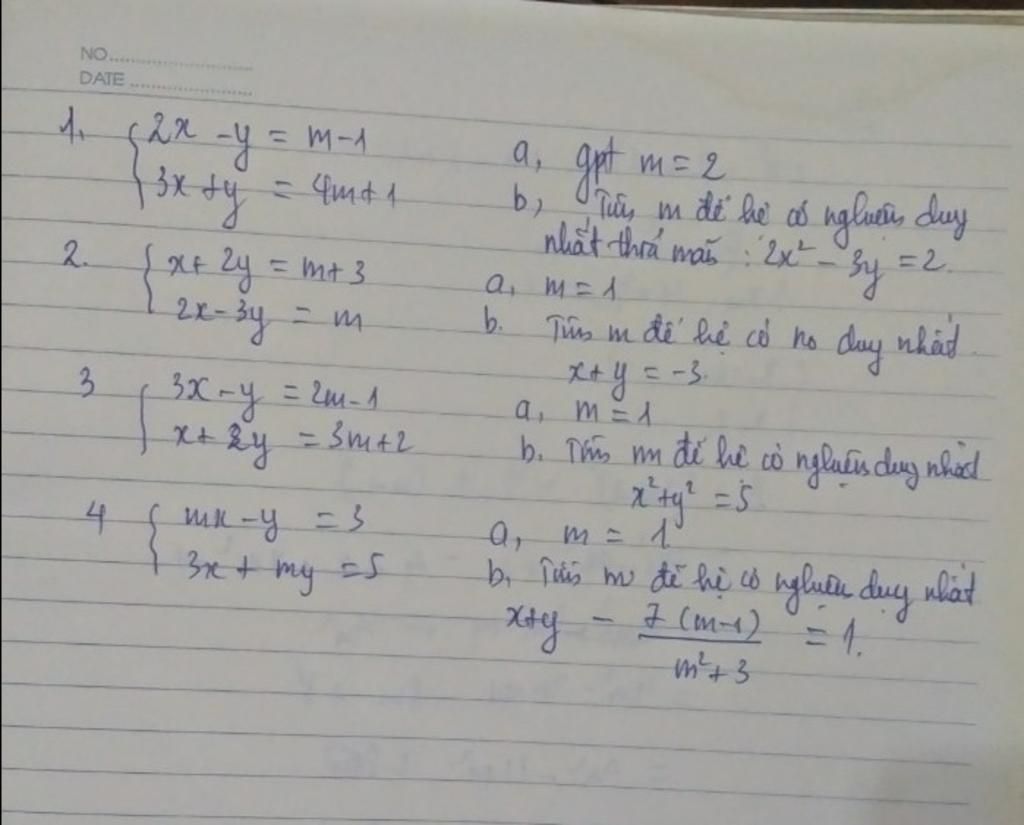 NO..............................
DATE ..............................
1. { 2x - y = m - 1 a, gpt m = 2
3x + y = 4m + 1 b, Tìm m để hệ có nghiệm duy
nhất thoả mãn : 2x² - 3y = 2.
2. { x + 2y = m + 3 a, m = 1
2x - 3y = m b. Tìm m để hệ có no duy nhất
x + y = -3.
3 { 3x - y = 2m - 1 a, m = 1
x + 2y = 3m + 2 b. Tìm m để hệ có nghiệm duy nhất
x² + y² = 5
4 { mx - y = 3 a, m = 1
3x + my = 5 b, Tìm m để hệ có nghiệm duy nhất
x+y - 7(m-1) / m²+3 = 1.